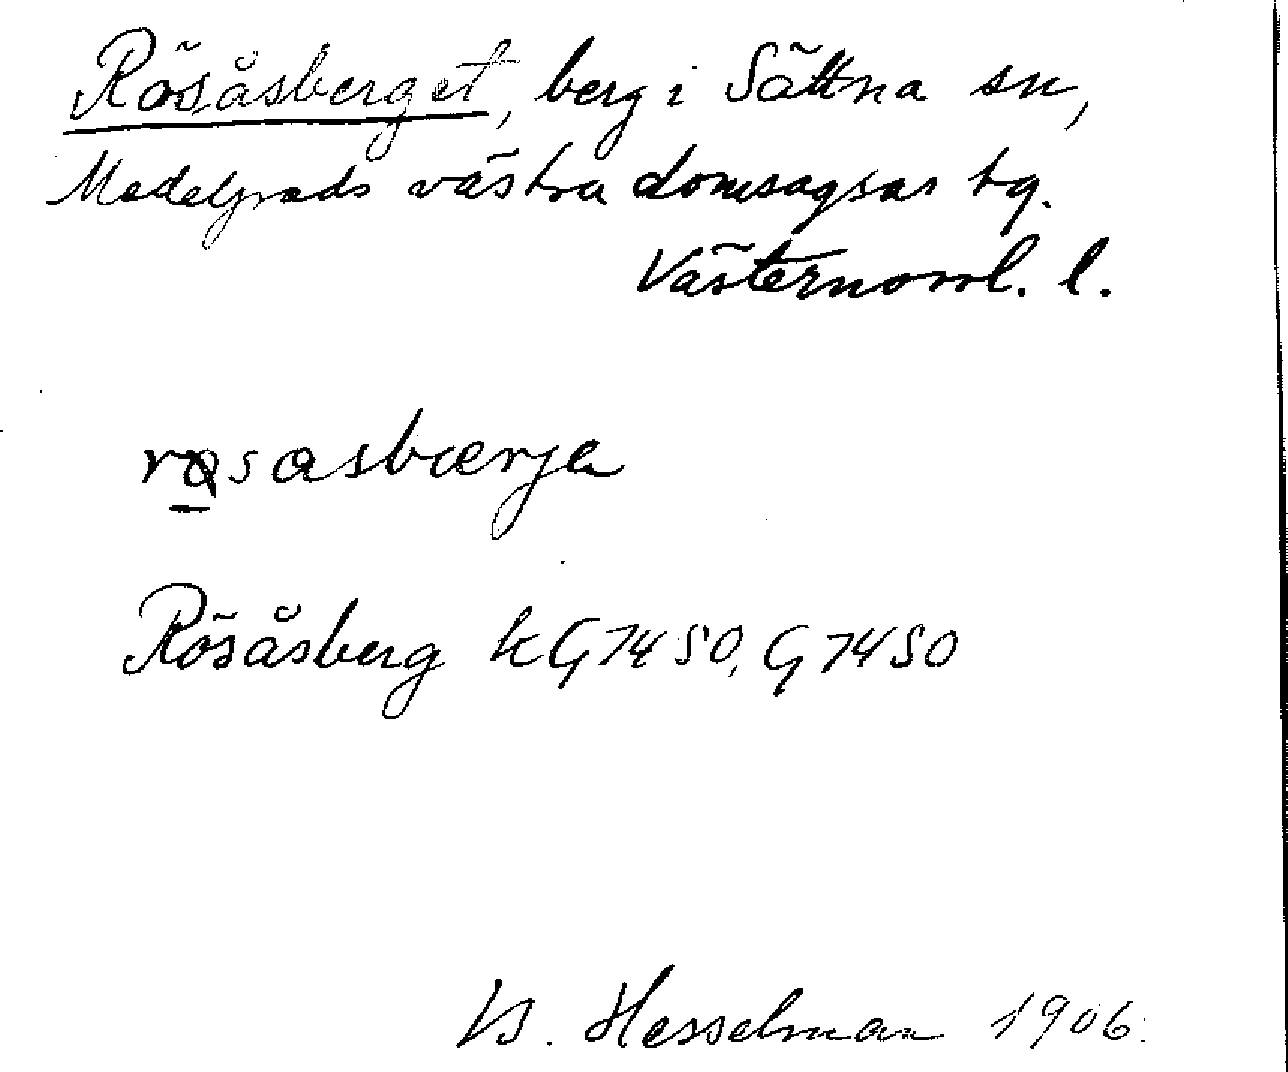 Rösåsberget, berg i Sättna sn,
Medelpads västra domsagas tg.
Västernorrl. l.
rosasbærja
Rösåsberg kG7450, G7450
B. Hesselman 1906.